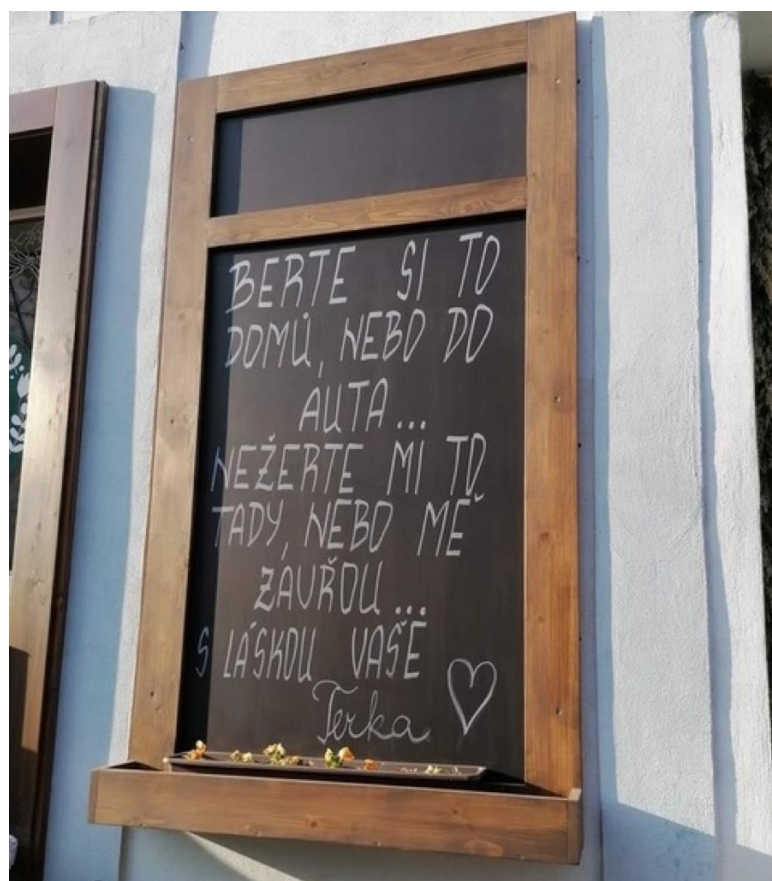 BERTE SI TO
DOMŮ, NEBO DO
AUTA...
NEŽERTE MI TO
TADY, NEBO MĚ
ZAVŘOU...
S LÁSKOU VAŠE
Terka